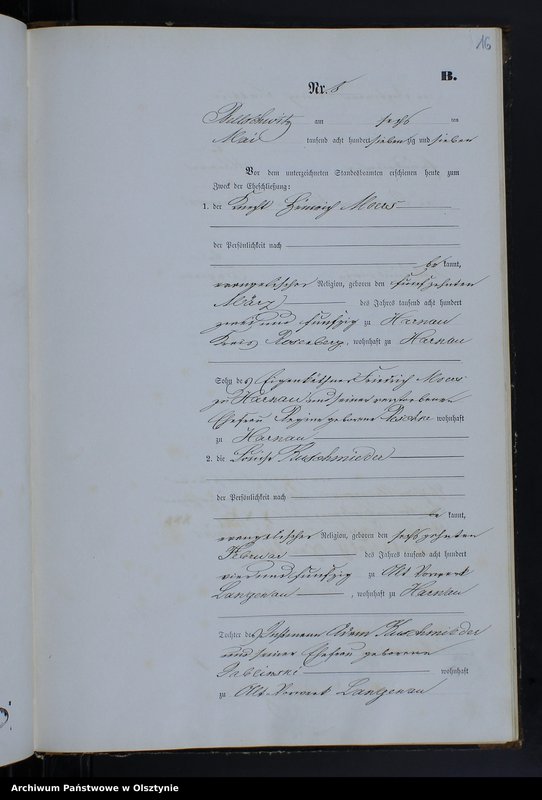 16
B.
Nr. 8
am sechs ten
Mai tausend acht hundert siebenzig und sieben
Vor dem unterzeichneten Standesbeamten erschienen heute zum
Zweck der Eheschließung:
1. der Knecht Heinrich Moers
der Persönlichkeit nach
be kannt,
evangelischer Religion, geboren den fünfzehnten
März des Jahres tausend acht hundert
zwei und fünfzig zu Harnau
Kreis Rosenberg, wohnhaft zu Harnau
Sohn des Eigenkäthner Friedrich Moers
zu Harnau und seiner verstorbenen
Ehefrau Regine geborene wohnhaft
zu Harnau
2. die Louise Kuschmieder
der Persönlichkeit nach
be kannt,
evangelischer Religion, geboren den sechszehnten
Februar des Jahres tausend acht hundert
vier und fünfzig zu Alt Vorwerk
Langenau, wohnhaft zu Harnau
Tochter des Instmann Adam Kuschmieder
und seiner Ehefrau geborene
Jablinski wohnhaft
zu Alt Vorwerk Langenau
Archiwum Państwowe w Olsztynie